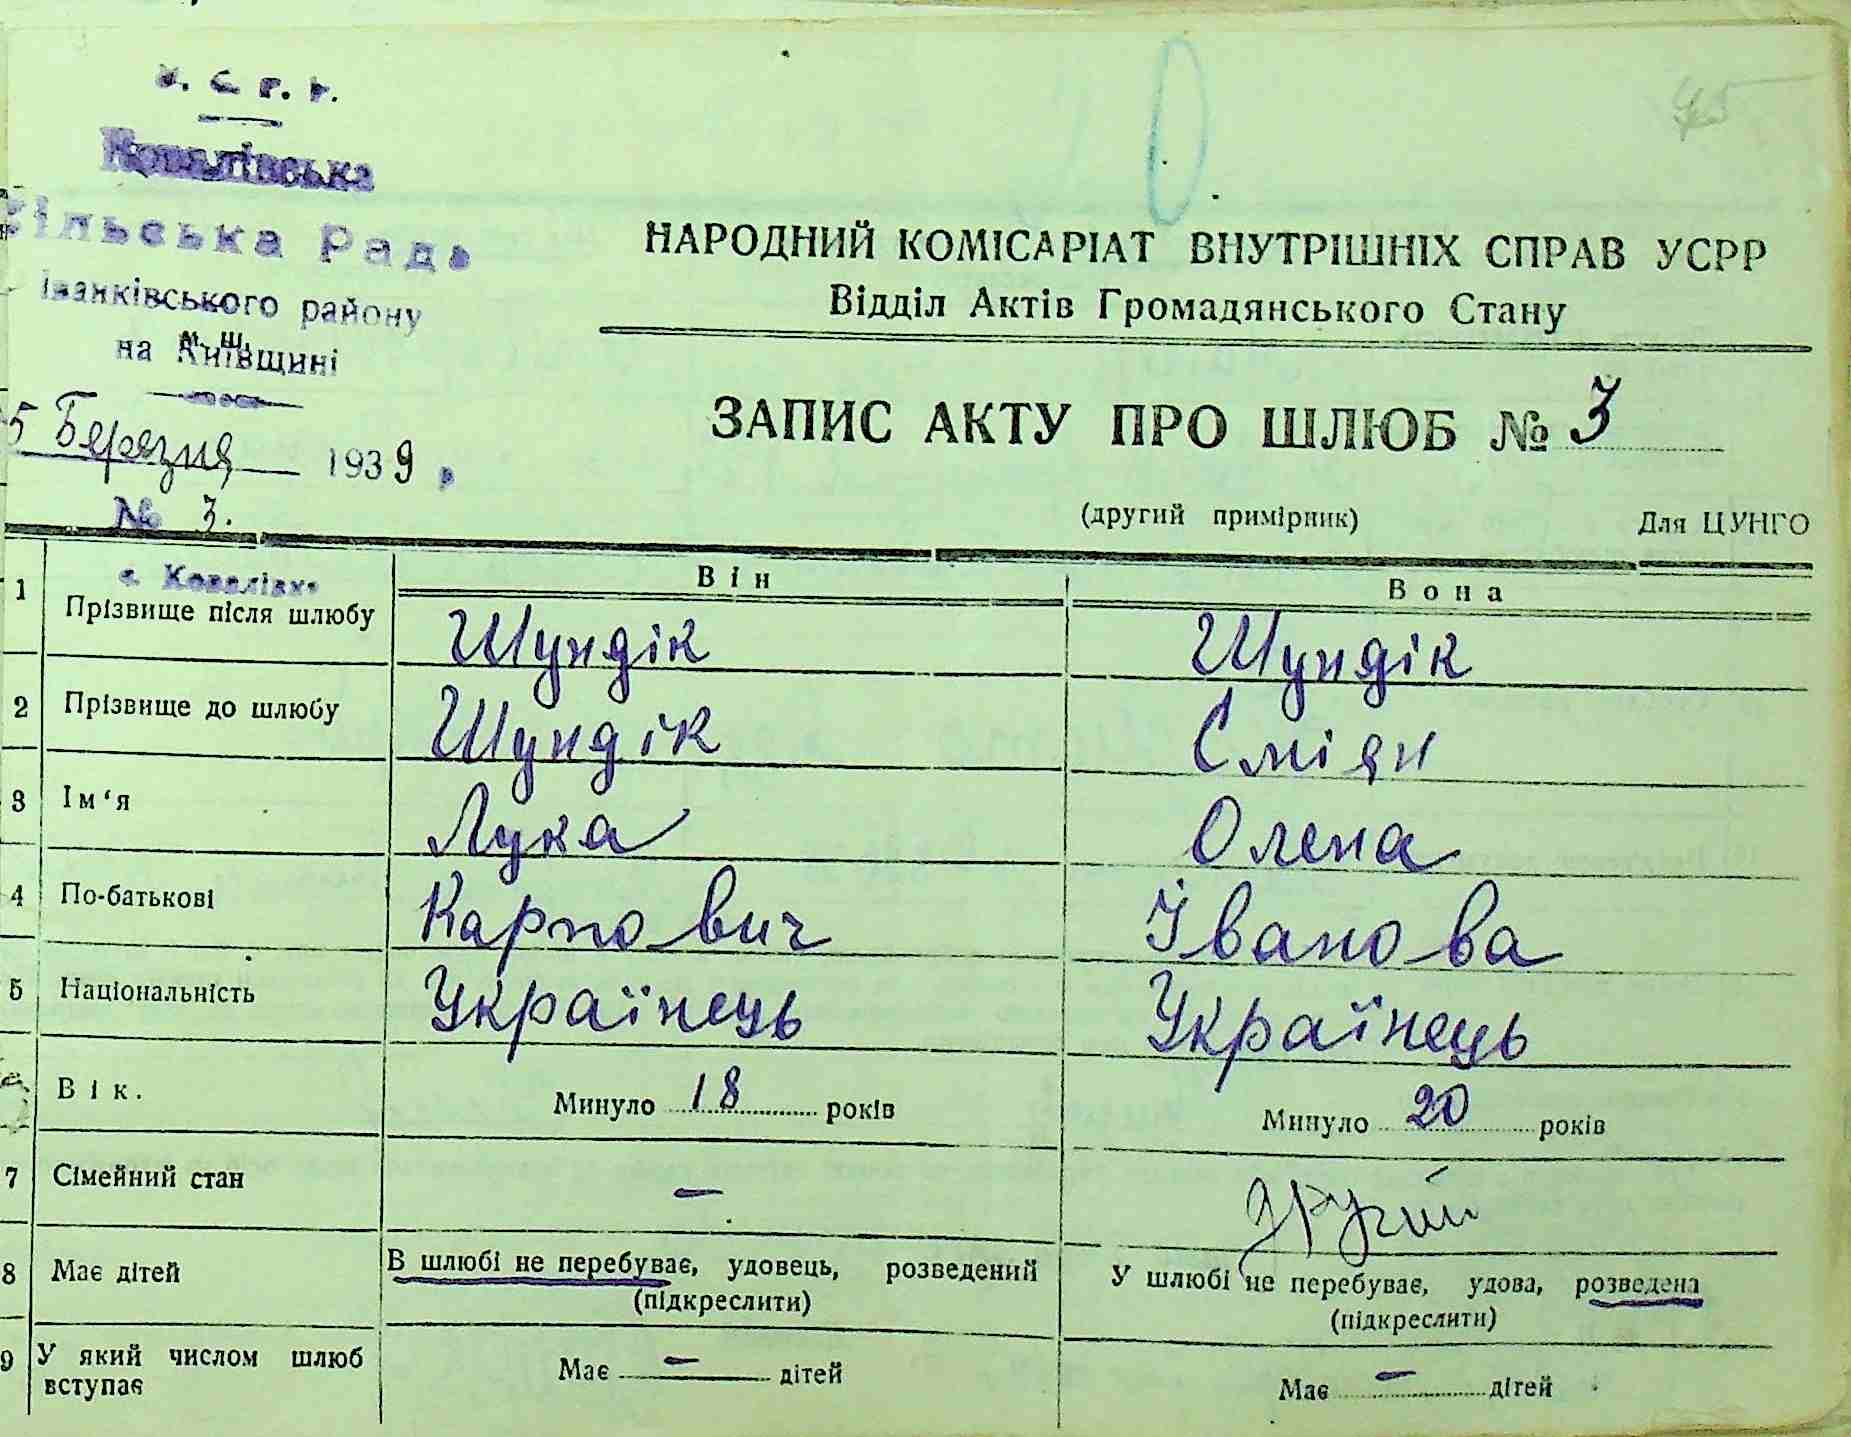 У. С. Р. Р.
Ковалівська
Сільська Рада
Іванківського району
на Київщині
5 Березня 1939 р
№ 3.
45
НАРОДНИЙ КОМІСАРІАТ ВНУТРІШНІХ СПРАВ УСРР
Відділ Актів Громадянського Стану
ЗАПИС АКТУ ПРО ШЛЮБ № 3
(другий примірник) Для ЦУНГО
с. Ковалівка
Він Вона
1 Прізвище після шлюбу Шундік Шундік
2 Прізвище до шлюбу Шундік Сміян
3 Ім'я Лука Олена
4 По-батькові Карпович Іванова
5 Національність Українець Українець
Вік. Минуло 18 років Минуло 20 років
7 Сімейний стан — другий
8 Має дітей В шлюбі не перебуває, удовець, розведений У шлюбі не перебуває, удова, розведена
(підкреслити) (підкреслити)
9 У який числом шлюб
вступає Має — дітей Має — дітей